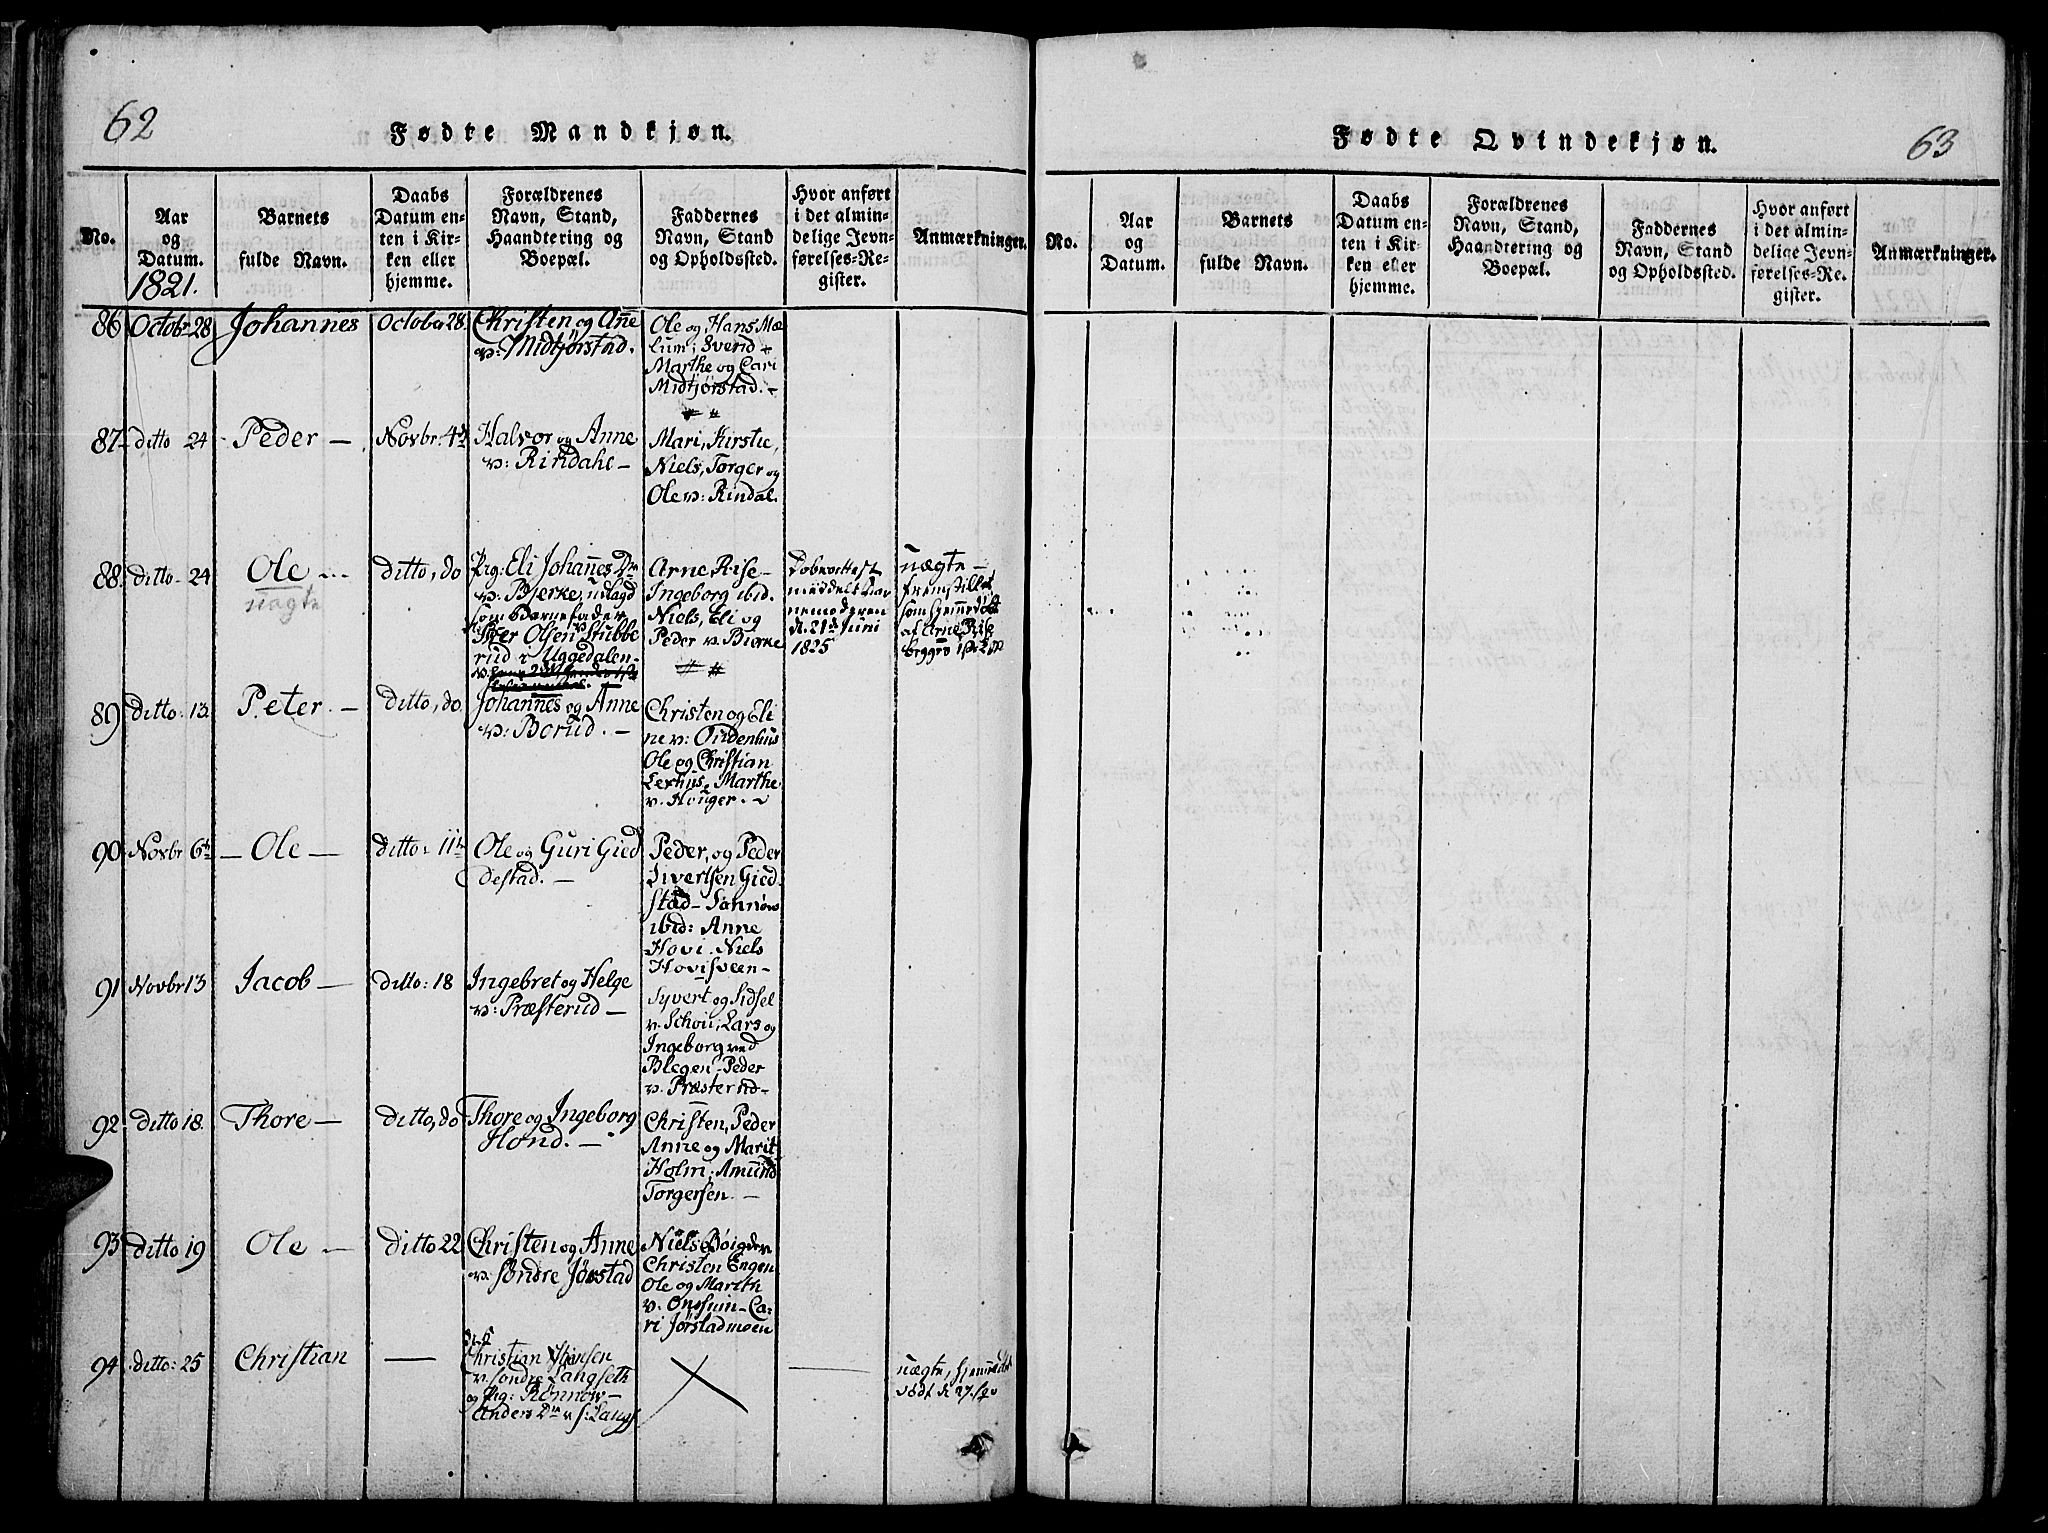 62
Fødte Mandkjøn.
No.
Aar
og
Datum.
1821.
Barnets
fulde Navn.
Daabs
Datum en-
ten i Kir-
ken eller
hjemme.
Forældrenes
Navn, Stand,
Haandtering og
Boepæl.
Faddernes
Navn, Stand
og Opholdssted.
Hvor anført
i det almin-
delige Jevn-
førelses-Re-
gister.
Anmærkninger.
86
Octobr 28
Johannes
October 28
Christen og Anne
v: Midtjørstad.
Ole og Hans Mæ
lum; Sverid
Marthe og Cari
Midtjørstad. -
87
ditto 24
Peder -
Novbr: 4de
Halvor og Anne
v: Rindahl -
Mari, Kirstie,
Niels, Torger og
Ole v: Rindal.
88
ditto - 24
Ole -
uægte
ditto, do
Pig: Eli Johannes Dr
v: Bjerke, udlagd
som Barnefader
Iver Olsen Stubbe
rud i Uggedalen
Arne Rise -
Ingeborg ibid.
Niels, Eli og
Peder v. Bierke
Dobeattest
meddelt Bar
nemoderen
d. 21de Juni
1825
uægte -
fremstillet
som hjemmedøbt
af Arne Rise
89
ditto: 13.
Peter. -
ditto, do
Johannes og Anne
v: Borud. -
Christen og Eli
ne v: Oudenhus
Ole og Christian
Lerhus. Marthe
v. Houger. -
90
Novbr 6te
- Ole -
ditto: 11te
Ole og Guri Gied
destad. -
Peder, og Peder
Ivertsen Gied
stad - Sønnøv
ibid: Anne
Hovi. Niels
Hovisveen -
91
Novbr 13
Jacob -
ditto: 18
Ingebret og Helge
v: Præsterud -
Syvert og Sidsel
v. Schou, Lars og
Ingeborg ved
Blegen - Peder
v. Præsterud -
92
ditto 18.
Thore -
ditto, do
Thore og Ingeborg
Hond. -
Christen, Peder
Anne og Marit
Holm; Amund
Torgersen. -
93
ditto 19
Ole -
ditto 22
Christen og Anne
v. Søndre Jørstad
Niels Bøigden
Christen Engen
Ole og Marth
v. Onssum - Ca-
ri Jørstadmoen
94
ditto: 25
Christian
Christian Hansen
v. søndre Langseth
og Pig: Rønnov -
Anders Dr v s: Langs.
uægte, hjemmedøbt
død d 27.
Fødte Qvindekjøn.
63
No.
Aar
og
Datum.
Barnets
fulde Navn.
Daabs
Datum en-
ten i Kir-
ken eller
hjemme.
Forældrenes
Navn, Stand,
Haandtering og
Boepæl.
Faddernes
Navn, Stand
og Opholdssted.
Hvor anført
i det almin-
delige Jevn-
førelses-Re-
gister.
Anmærkninger.